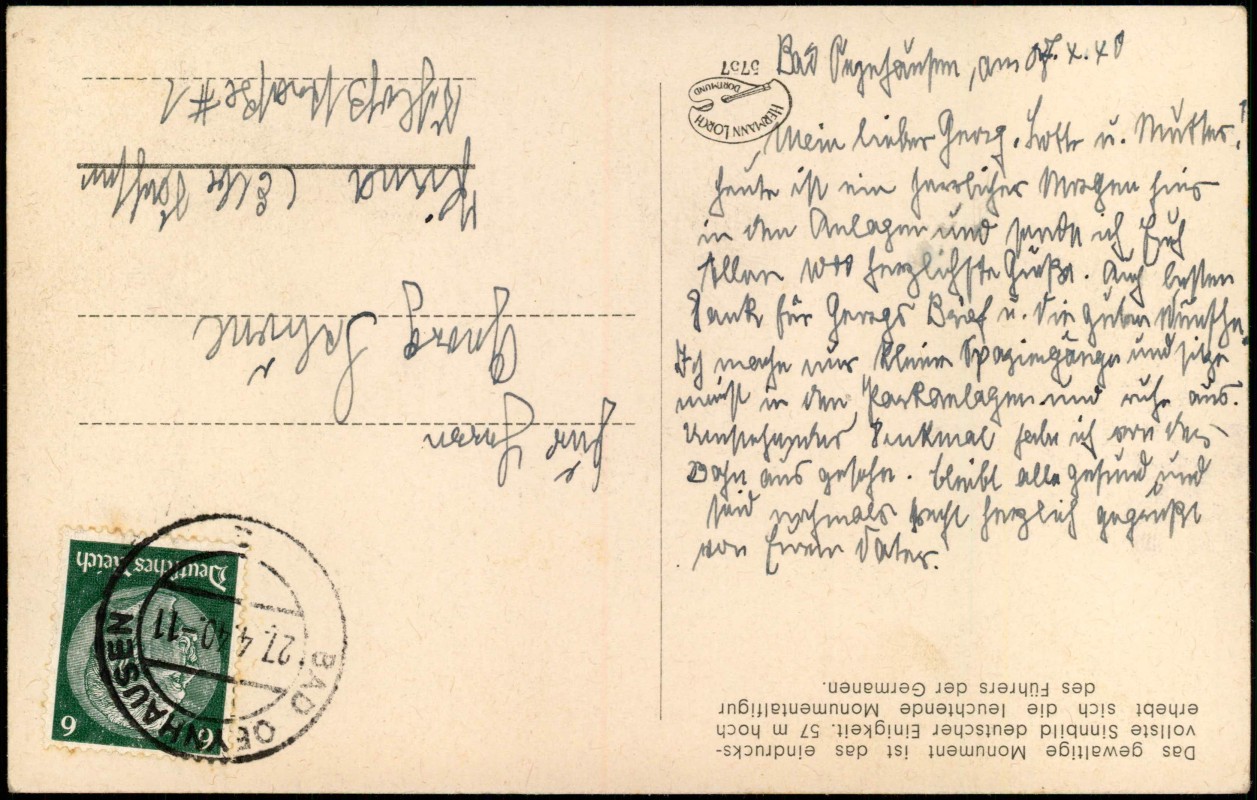 Bad Oeynhausen, am 27.4.40
Mein lieber Georg, Lotte u. Mutter!
heute ist ein herrlicher Morgen hier
in den Anlagen und sende ich Euch
allen das herzlichste Grüße. Auch besten
Dank für Georgs Brief u. die guten Wünsche.
Ich mache nur kleine Spaziergänge und sitze
meist in den Parkanlagen und ruhe aus.
Umstehendes Denkmal habe ich von der
Bahn aus gesehn. bleibt alle gesund und
seid nochmals recht herzlich gegrüßt
von Eurem Vater.
HERMANN LORCH
DORTMUND
5757
Das gewaltige Monument ist das eindrucks-
vollste Sinnbild deutscher Einigkeit. 57 m hoch
erhebt sich die leuchtende Monumentalfigur
des Führers der Germanen.
Deutsches Reich
6 6
BAD OEYNHAUSEN
27.4.40.-11
Herrn
Georg
Pirna (Elbe Sachsen
Schloßstraße #1